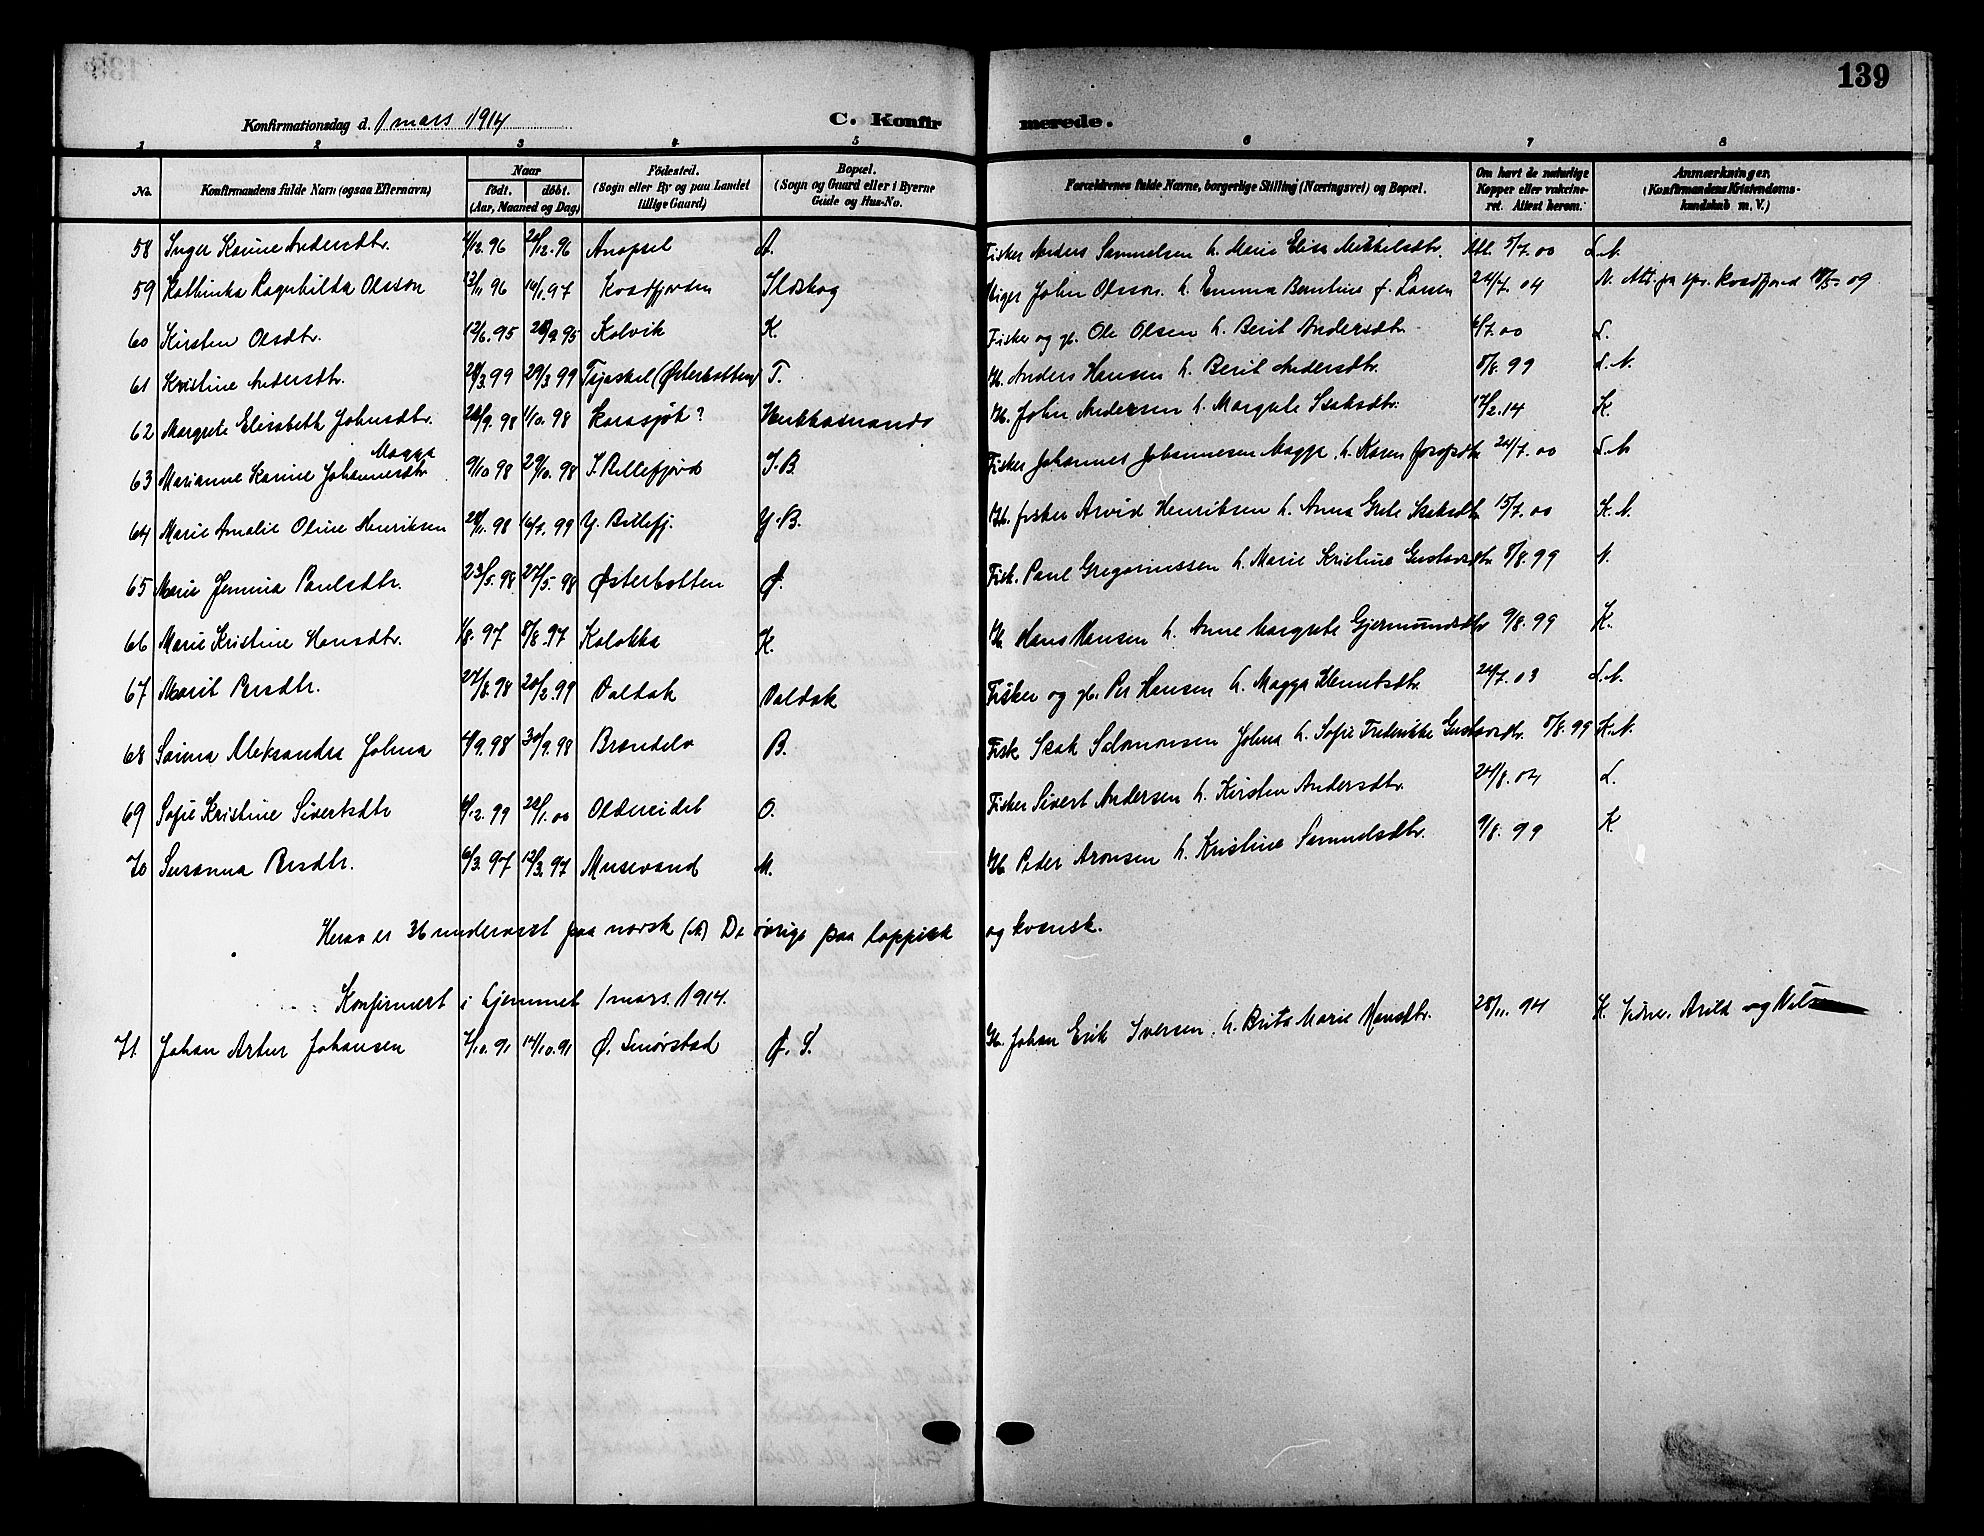 139
Konfirmationsdag d. 1 mars 1914
C. Konfirmerede.
1 2 3 4 5 6 7 8
No. Konfirmandens fulde Navn (ogsaa Efternavn) Naar født. døbt. (Aar, Maaned og Dag) Fødested. (Sogn eller By og paa Landet tillige Gaard) Bopæl. (Sogn og Gaard eller i Byerne Gade og Hus-No. Forældrenes fulde Navne, borgerlige Stilling (Næringsvei) og Bopæl. Om havt de naturlige Kopper eller vakcineret. Attest herom. Anmærkninger. (Konfirmandens Kristendomskundskab m. V.)
58 Inger Karine Andersdtr. 4/12.96 26/12.96 Anopsel A. Fisker Anders Samuelsen h. Marie Elisa Mikkelsdtr. Att. 5/7.00 L.N.
59 Kathinka Ragnhilda Olsson 13/11 96 14/1.97 Kvadfjorden Ildskog John Olsson h. Emma Berntine f. Larsen 24/7.04 N. Att. fra spr. Kvadfjord 18/5 09
60 Kirsten Olsdtr. 12/6.95 28/9.95 Kolvik K. Fisker og gb. Ole Olsen h. Berit Andersdtr. 6/7.00 L.
61 Kristine Andersdtr. 28/3 99 29/3 99 Tjæskel (Østerbotten) T. Gb. Anders Hansen h. Berit Andersdtr. 8/8.99 L.N.
62 Margrete Elisabeth Johnsdtr. 26/9.98 1/10.98 Karasjok? Gb. John Andersen h. Margrete Isaksdtr. 17/2.14 K.
63 Marianne Karine Johannesdtr Magga 9/10 98 29/10.98 I. Billefjord I.B. Fisker Johannes Johannesen Magga, h. Karen Josefsdtr 24/7.00 L.N.
64 Marie Amalie Oline Henriksen 28/11.98 16/7.99 Y. Billefj. Y.B. Gb. fisker Arvid Henriksen h. Anna Grete Isaksdtr 15/7.00 K.N.
65 Marie Jemina Paulsdtr. 23/5.98 27/5.98 Østerbotten Ø. Fisk. Paul Gregoriussen h. Marie Kristine Gustavsdtr 8/8.99 N.
66 Marie Kristine Hansdtr. 1/8.97 8/8.97 Kolokka K. Gb. Hans Hansen h. Anne Margrete Gjermundsdtr 9/8.99 K.
67 Marit Persdtr. 27/8.98 20/2.99 Valdak Valdak Fisker og gb. Per Hansen h. Magga Klemetsdtr. 24/7.03 L.N.
68 Saima Aleksandra Johna 4/9.98 30/9.98 Brændelv B. Fisk Isak Salomonsen Johna h. Sofie Frederikke Gustavsdtr. 8/8.99 K.N.
69 Sofie Kristine Sivertsdtr 6/12.99 22/1.00 Oldereidet O. Fisker Sivert Andersen h. Kirsten Andersdtr. 24/8.04 L.
70 Susanna Persdtr. 6/3.97 12/3.97 Musevand M. Gb Peder Aronsen h. Kristine Samuelsdtr. 9/8.99 K.
Herav er 36 undervist paa norsk (N) De øvrige paa lappisk og kvensk.
Konfirmert i hjemmet 1 mars. 1914.
71. Johan Artur Johansen 7/10.91 14/10.91 Ø. Smørstad Ø.S. Gb. Johan Erik Iversen, h. Brita Marie Hansdtr. 28/11.94 K. Vidner. Arild og Nils